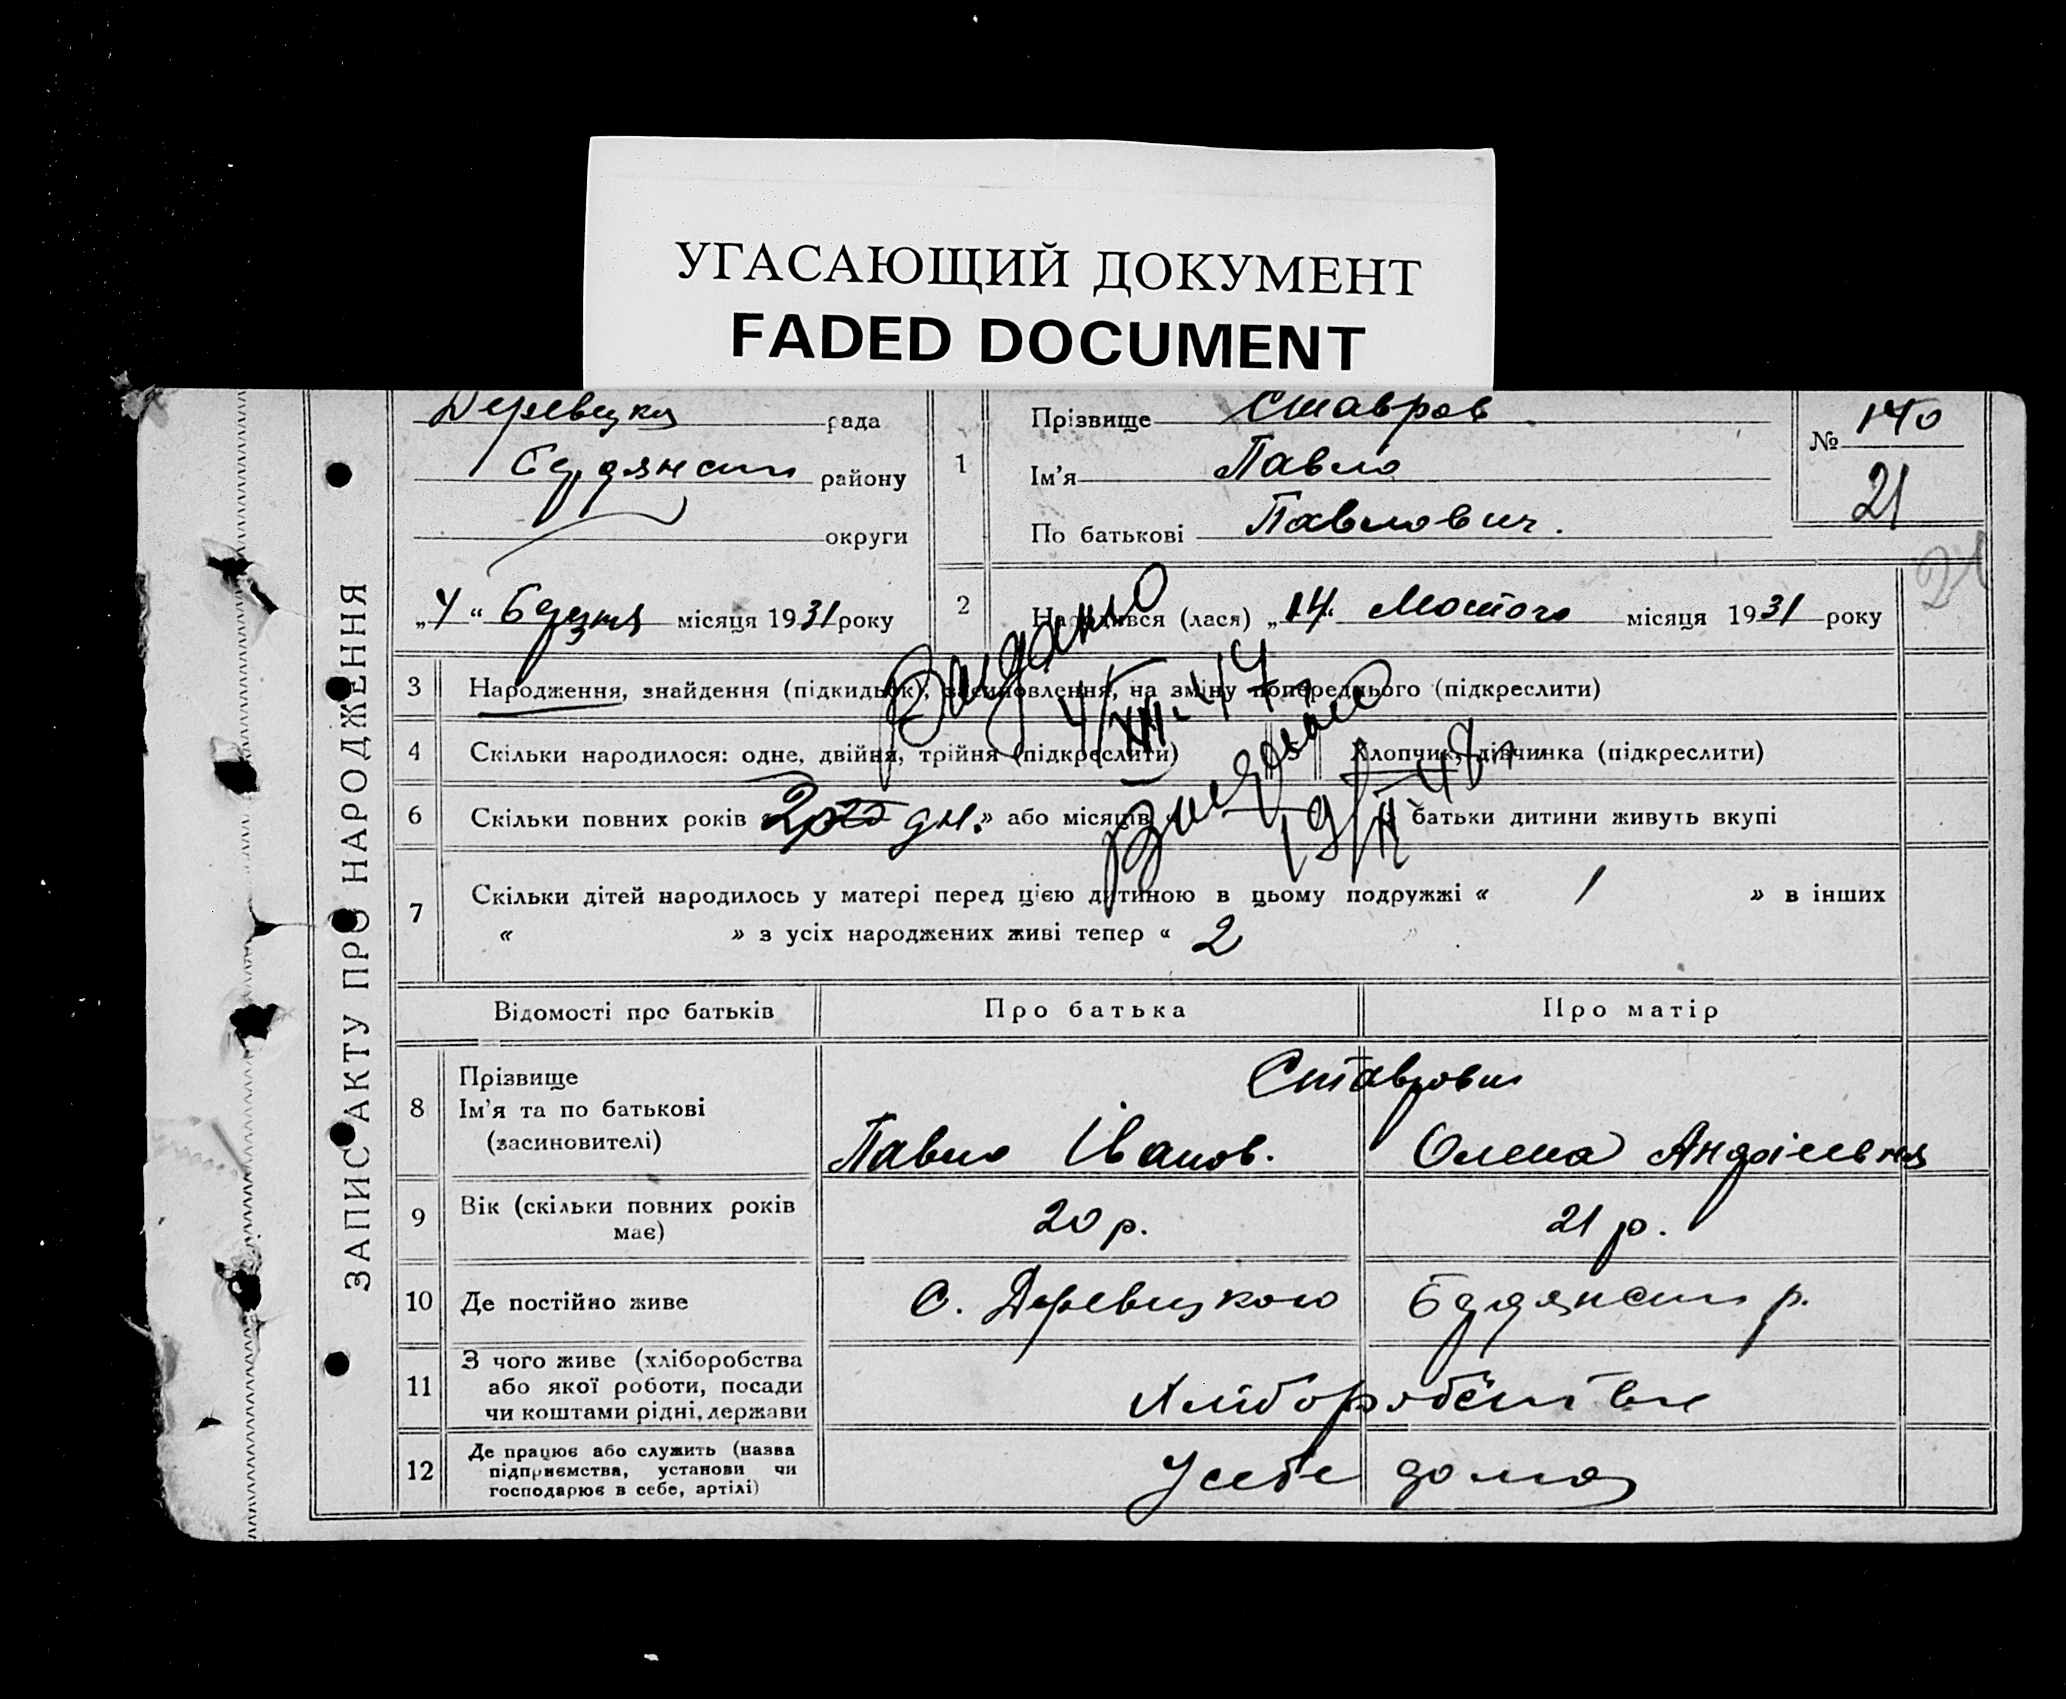 УГАСАЮЩИЙ ДОКУМЕНТ
FADED DOCUMENT
ЗАПИС АКТУ ПРО НАРОДЖЕННЯ
рада
району
округи
1
Прізвище Ставров
Ім'я Павло
По батькові Павлович.
№ 140
21
21
„4“ місяця 1931 року
2
Народився (лася) „14. Лютого місяця 1931 року
3 Народження, знайдення (підкидьок), засиновлення, на зміну попереднього (підкреслити)
Видано
4/XII-47
4 Скільки народилося: одне, двійня, трійня (підкреслити)
Хлопчик, дівчинка (підкреслити)
Видано
19/II-48
6 Скільки повних років дн.» або місяців батьки дитини живуть вкупі
7 Скільки дітей народилось у матері перед цією дитиною в цьому подружжі « 1 » в інших
« » з усіх народжених живі тепер « 2
Відомості про батьків Про батька Про матір
8 Прізвище
Ім'я та по батькові
(засиновителі)
Ставрови
Павло Іванов. Олена Андріївна
9 Вік (скільки повних років
має)
20 р. 21 р.
10 Де постійно живе
с. р.
11 З чого живе (хліборобства
або якої роботи, посади
чи коштами рідні, держави
Хліборобство
12 Де працює або служить (назва
підприємства, установи чи
господарює в себе, артілі)
У себе дома